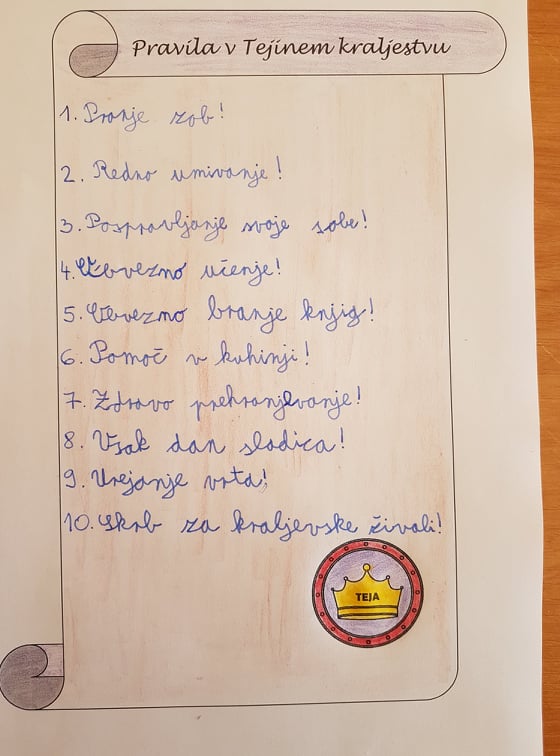 Pravila v Tejinem kraljestvu
1. Pranje zob!
2. Redno umivanje!
3. Pospravljanje svoje sobe!
4. Obvezno učenje!
5. Obvezno branje knjig!
6. Pomoč v kuhinji!
7. Zdravo prehranjevanje!
8. Vsak dan sladica!
9. Urejanje vrta!
10. Skrb za kraljevske živali!
TEJA